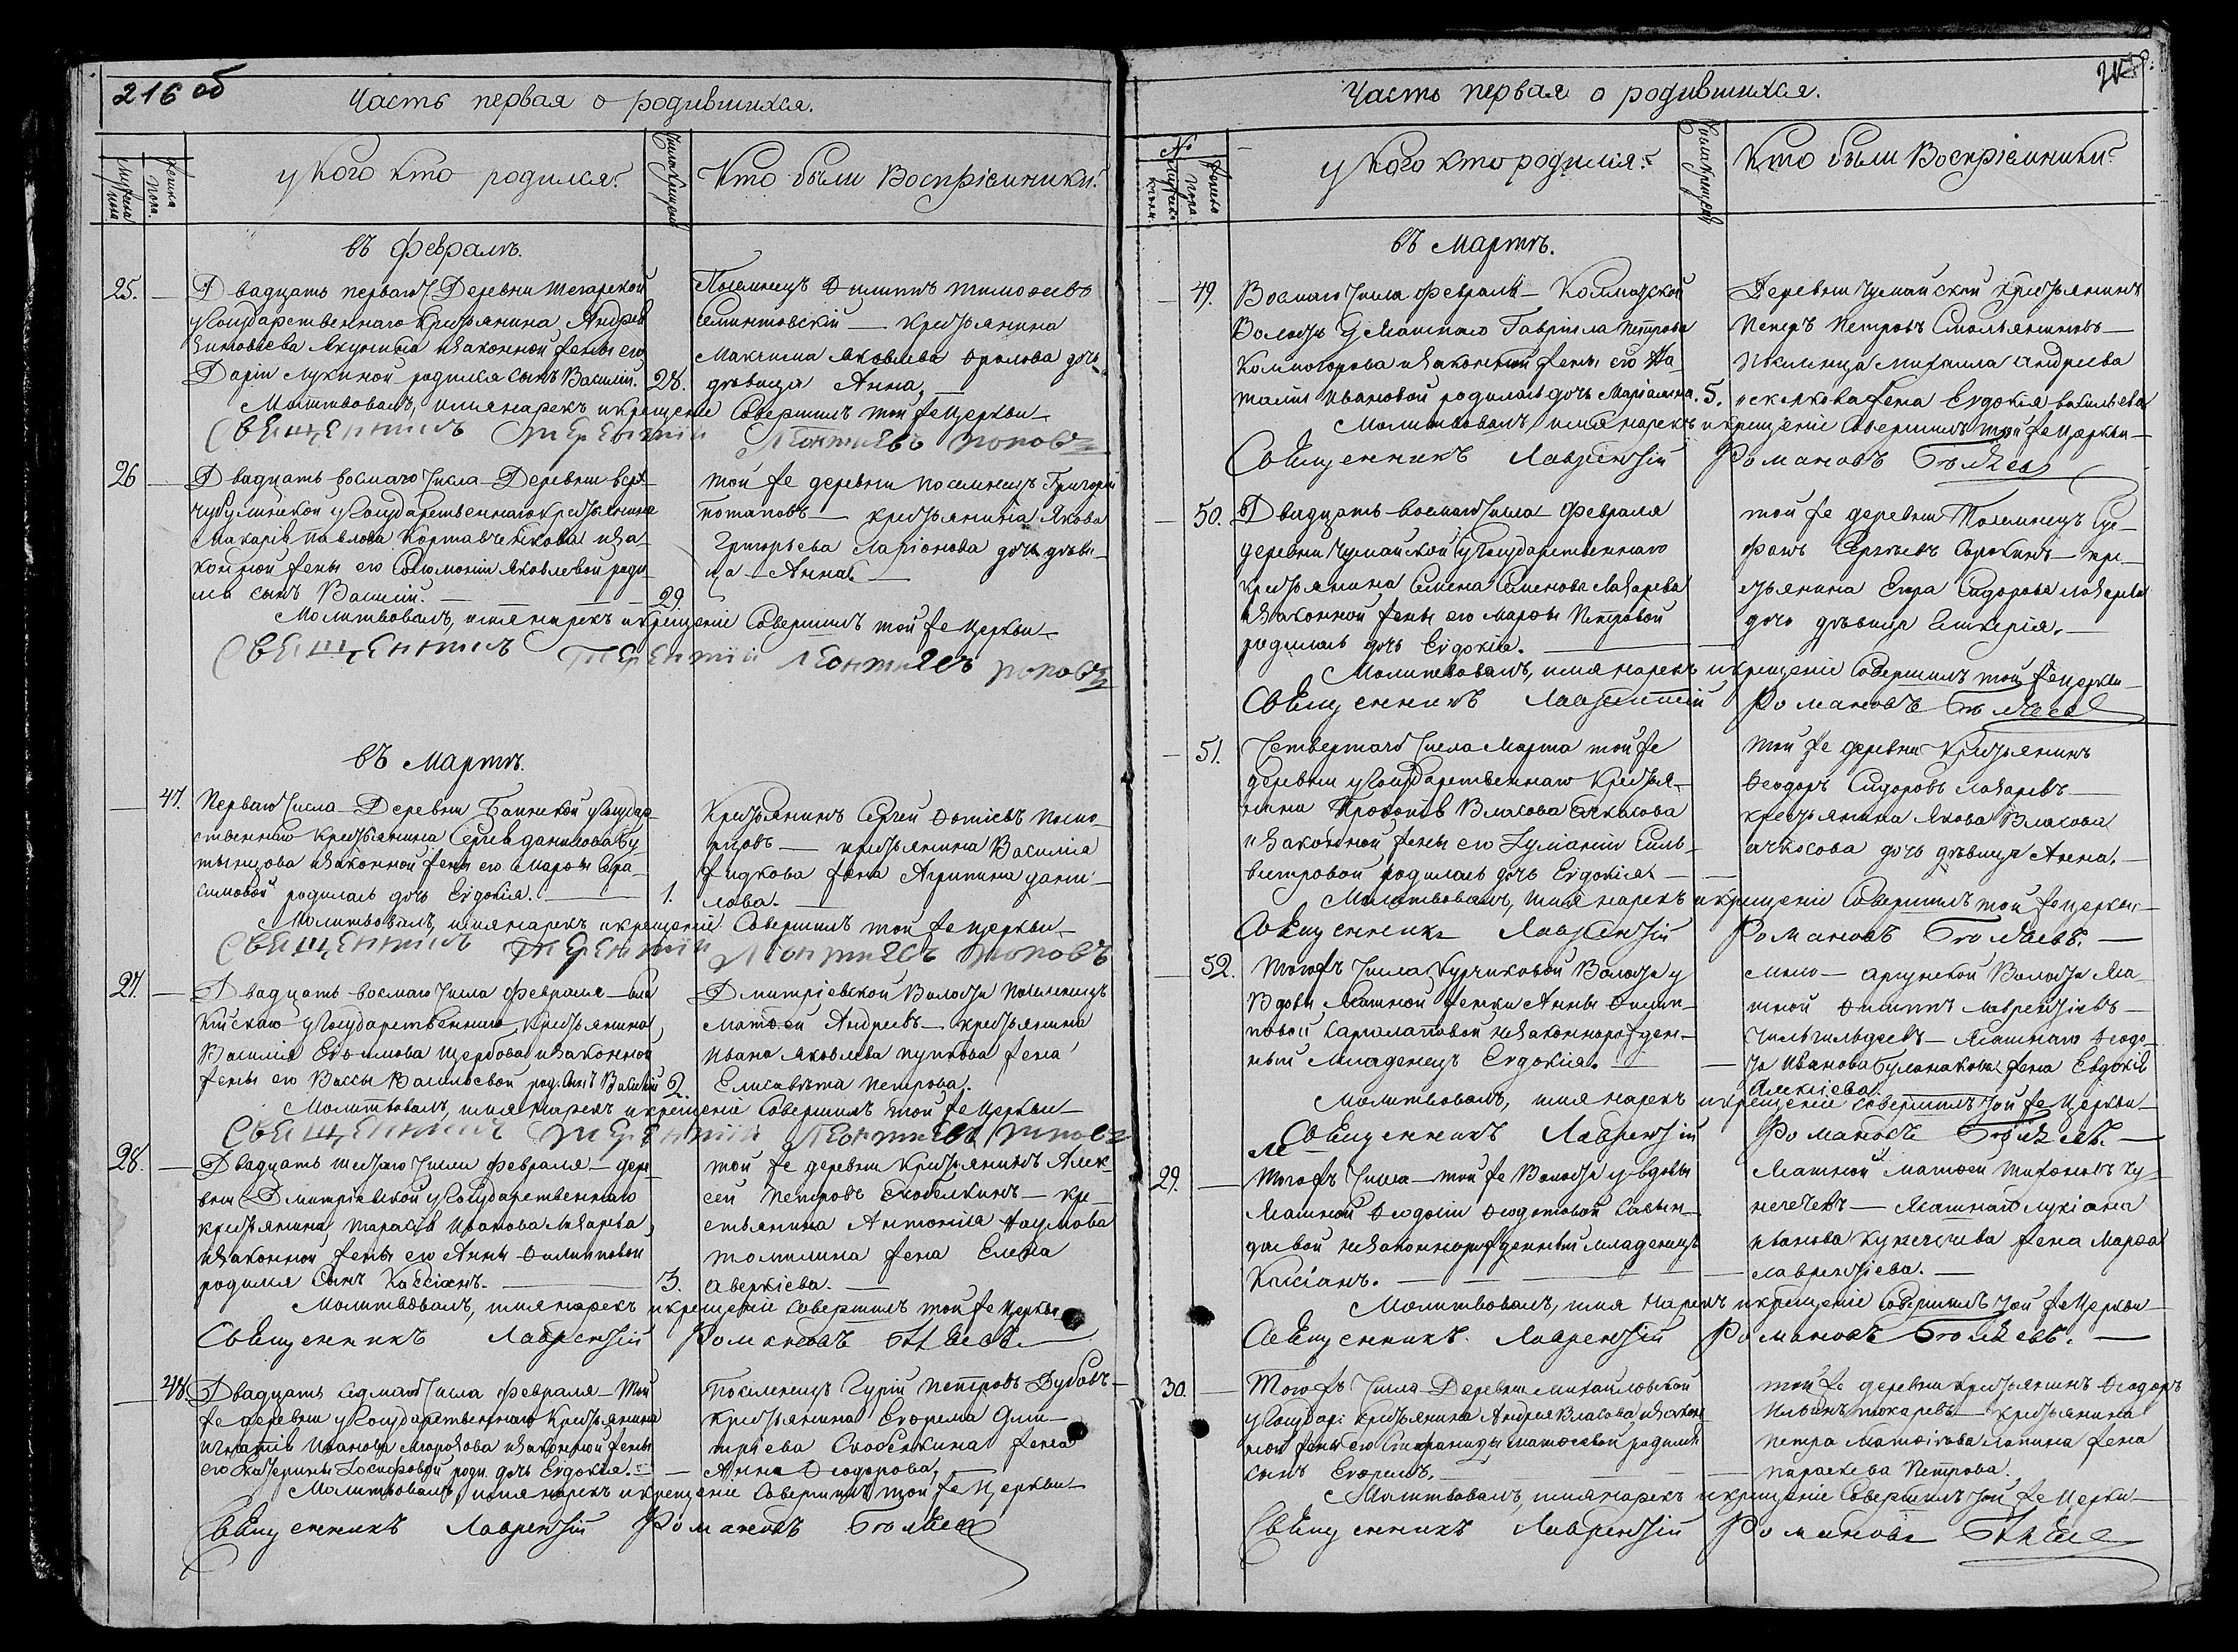 216 об
Часть первая о родившихся.
Мужеска пола
Женска пола.
У кого кто родился?
Число крещения
Кто были Восприемники?
въ Февралѣ.
25.
Двадцать перваго ч. Деревни
у Государственнаго Крестьянина Андрея
законной жены его
Дарьи Лукиной родился сынъ Василій. 28.
Поселенецъ Филиппъ Тимофеевъ
крестьянина
Максима Яковлева Фролова дочь
дѣвица Анна.
Молитвовалъ, имя нарекъ и крещеніе Совершилъ той же Церкви
Священникъ Терентій Леонтьевъ Поповъ
26
Двадцать восмаго Числа Деревни верх-
чубулинской у Государственнаго крестьянина
Макарія Павлова и за-
конной жены его Соломоніи Яковлевой роди-
лся сынъ Василій. 29
той же деревни поселенецъ Григорій
Потаповъ крестьянина Якова
Григорьева Ларіонова дочь дѣви-
ца Анна.
Молитвовалъ, имя нарекъ и крещеніе Совершилъ той же Церкви
Священникъ Терентій Леонтьевъ Поповъ
въ Мартѣ.
47.
Перваго Числа Деревни у Государ-
ственнаго крестьянина Сергея Данилова
законной жены его Марфы Гера-
симовой родилась дочь Евдокія. 1.
Крестьянинъ Сергей Фотіевъ
крестьянина Василія
Жидкова жена Агрипина Дани-
лова.
Молитвовалъ, имя нарекъ и крещеніе Совершилъ той же церкви
Священникъ Терентій Леонтьевъ Поповъ
27.
Двадцать восмаго Числа Февраля
у Государственнаго Крестьянина
Василія Ефимова Щербова и законной
жены его Вассы Васильевой род. сынъ Василій 2.
Дмитріевской Волости Поселенецъ
Матфей Андреевъ крестьянина
Ивана Яковлева Пушкова жена
Елисавѣта Петрова.
Молитвовалъ, имя нарекъ и крещеніе Совершилъ той же Церкви
Священникъ Терентій Леонтьевъ Поповъ
28.
Двадцать шестаго Числа Февраля дере-
вни Дмитріевской у Государственнаго
крестьянина Тарасія Иванова Лазарева
и законной жены его Анны Филипповой
родился сынъ Кассіанъ. 3.
той же деревни Крестьянинъ Алек-
сей Петровъ Скобелкинъ кре-
стьянина Антонія Наумова
Томилина жена Елена
Аверкіева.
Молитвовалъ, имя нарекъ и крещеніе совершилъ той же Церкви
Священникъ Лаврентій Романовъ
48.
Двадцать седмаго Числа Февраля Той
же деревни у Государственнаго Крестьянина
Игнатія Иванова Морозова и законной жены
его Екатерины Іосифовой роди. дочь Евдокія.
Поселенецъ Гурій Петровъ Дубовъ
крестьянина Ефрема Дми-
тріева Скобелкина жена
Анна Феодорова.
Молитвовалъ, имя нарекъ и крещеніе Совершилъ той же Церкви
Священникъ Лаврентій Романовъ
Часть первая о родившихся.
№
Мужеска пола.
Женска пола
У кого кто родился?
Число крещенія
Кто были Восприемники?
въ Мартѣ.
49.
Восмаго Числа Февраля
Волости у Ясашнаго Гавріила Петрова
Колмогорова и законной жены его На-
таліи Ивановой родилась дочь Маріамна. 5.
Деревни Чумайской крестьянинъ
Петръ Петровъ Смольянинъ
Михаила Андреева
жена Евдокія Васильева
Молитвовалъ имя нарекъ и крещеніе Совершилъ той же Церкви
Священникъ Лаврентій Романовъ
50.
Двадцать восмаго Числа Февраля
деревни Чумайской у Государственнаго
крестьянина Семена Семенова Лазарева
и законной жены его Марфы Петровой
родилась дочь Евдокія.
той же деревни Поселенецъ Сте-
фанъ Сергѣевъ Сорокинъ кре-
стьянина Егора Сидорова Лазарева
дочь дѣвица Гликерія.
Молитвовалъ, имя нарекъ и крещеніе Совершилъ той же церкви
Священникъ Лаврентій Романовъ
51.
Четвертаго Числа Марта той же
деревни у Государственнаго Крестья-
нина Прокопія Власова Ачкасова
и законной жены его Іуліаніи Силь-
вестровой родилась дочь Евдокія
той же деревни Крестьянинъ
Феодоръ Сидоровъ Лазаревъ
крестьянина Якова Власова
Ачкасова дочь дѣвица Анна.
Молитвовалъ, имя нарекъ и крещеніе Совершилъ той же церкви
Священникъ Лаврентій Романовъ
52.
Тогожъ Числа Курчиковой Волости у
Вдовы Ясашной женки Анны Филип-
повой незаконнорожден-
ный младенецъ Евдокія.
мало-аргунской Волости Яса-
шной Филиппъ Лаврентіевъ
Ясашнаго Феодо-
та Иванова Буланакова жена Евдокія
Алексіева.
Молитвовалъ, имя нарекъ и крещеніе совершилъ той же Церкви
Священникъ Лаврентій Романовъ
29.
Тогожъ Числа той же Волости у вдовы
Ясашной Феодосіи Феодотовой
незаконнорожденный младенецъ
Кассіанъ.
Ясашной Матфей Тихоновъ
Ясашнаго Лукіана
Иванова жена Марфа
Лаврентіева.
Молитвовалъ, имя нарекъ и крещеніе Совершилъ той же Церкви
Священникъ Лаврентій Романовъ
30.
Тогожъ Числа Деревни Михайловской
у Государ: крестьянина Андрея Власова и закон-
ной жены его Степаниды Матфеевой родился
сынъ Ефремъ.
той же деревни крестьянинъ Феодоръ
Ильинъ Токаревъ крестьянина
Петра Матфеева Лапина жена
Параскева Петрова.
Молитвовалъ, имя нарекъ и крещеніе Совершилъ той же Церкви
Священникъ Лаврентій Романовъ